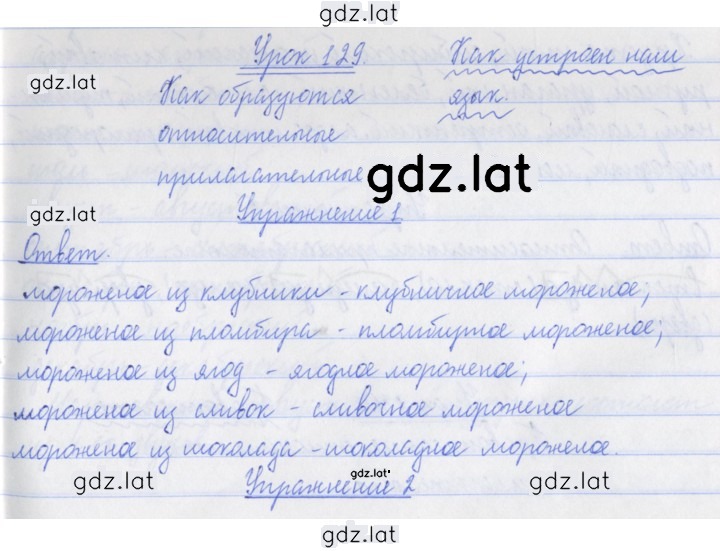 gdz.lat
Урок 129 Как устроен наш
gdz.lat
Как образуются язык.
относительные
прилагательные gdz.lat
gdz.lat Упражнение 1
Ответ.
мороженое из клубники - клубничное мороженое;
мороженое из пломбира - пломбирное мороженое;
мороженое из ягод - ягодное мороженое;
мороженое из сливок - сливочное мороженое
мороженое из шоколада - шоколадное мороженое.
gdz.lat gdz.lat gdz.lat
Упражнение 2
gdz.lat